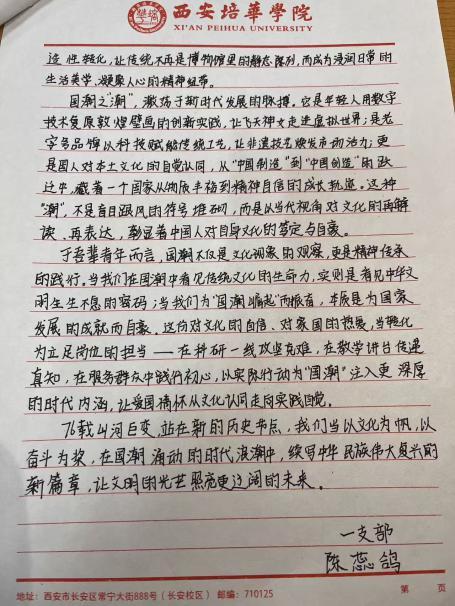 西安培華學院
XI'AN PEIHUA UNIVERSITY
造性转化,让传统不再是博物馆里的静态陈列,而成为浸润日常的
生活美学、凝聚人心的精神纽带。
国潮之“潮”,激荡于新时代发展的脉搏。它是年轻人用数字
技术复原敦煌壁画的创新实践,让飞天神女走进虚拟世界;是老
字号品牌以科技赋能传统工艺,让非遗技艺焕发市场活力;更
是国人对本土文化的自觉认同,从“中国制造”到“中国创造”的跃
迁中,藏着一个国家从物质丰裕到精神自信的成长轨迹。这种
“潮”,不是盲目跟风的符号堆砌,而是以当代视角对文化的再解
读、再表达,彰显着中国人对自身文化的笃定与自豪。
于吾辈青年而言,国潮不仅是文化现象的观察,更是精神传承
的践行。当我们在国潮中看见传统文化的生命力,实则是看见中华文
明生生不息的密码;当我们为“国潮崛起”而振奋,本质是为国家
发展的成就而自豪。这份对文化的自信、对家国的热爱,当转化
为立足岗位的担当——在科研一线攻坚克难,在教学讲台传递
真知,在服务群众中践行初心,以实际行动为“国潮”注入更深厚
的时代内涵,让爱国情怀从文化认同走向实践自觉。
76载山河巨变,站在新的历史节点,我们当以文化为帆,以
奋斗为桨,在国潮涌动的时代浪潮中,续写中华民族伟大复兴的
新篇章,让文明的光芒照亮更辽阔的未来。
一支部
陈蕊鸽
地址:西安市长安区常宁大街888号(长安校区) 邮编:710125
第 页